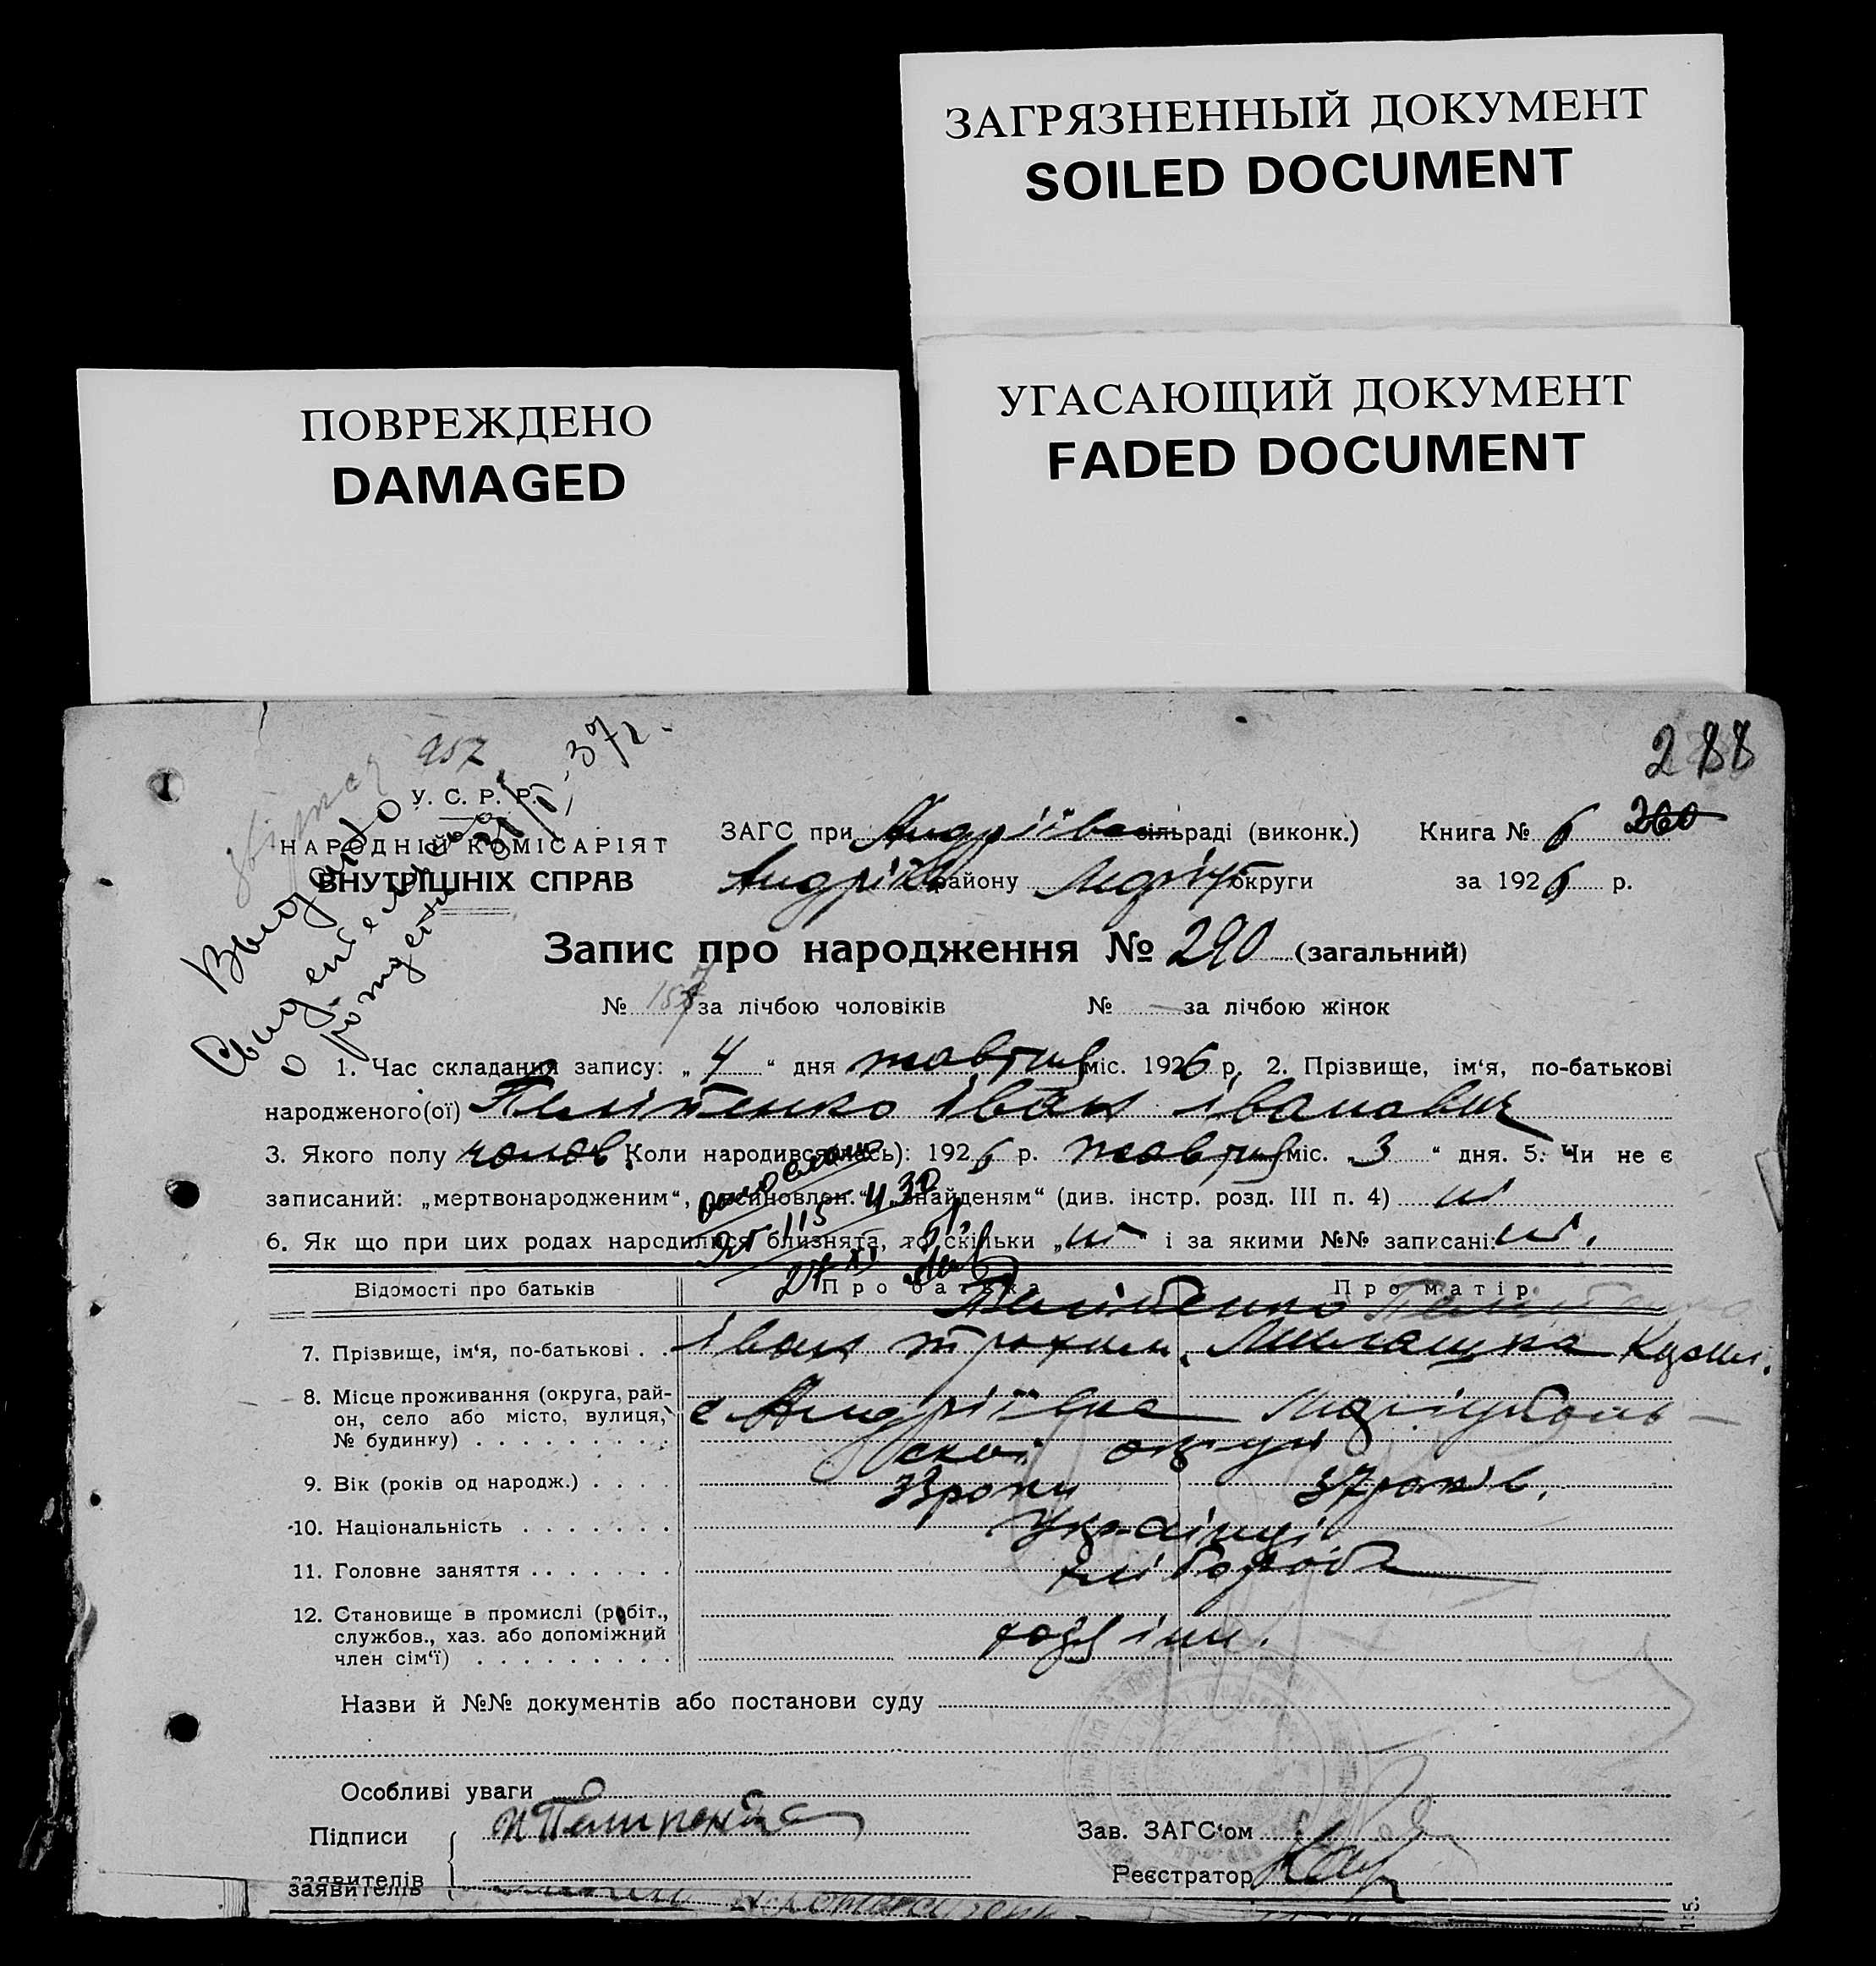 ЗАГРЯЗНЕННЫЙ ДОКУМЕНТ
SOILED DOCUMENT
ПОВРЕЖДЕНО
DAMAGED
УГАСАЮЩИЙ ДОКУМЕНТ
FADED DOCUMENT
288
957
Выдано
Свидетельство
о рождении
У. С. Р. Р.
НАРОДНІЙ КОМІСАРІЯТ
ВНУТРІШНІХ СПРАВ
ЗАГС при Андріївс сільраді (виконк.) Книга № 6 260
Андріїв району Маріуп округи за 1926 р.
Запис про народження № 290 (загальний)
№ 157 за лічбою чоловіків № — за лічбою жінок
1. Час складання запису: „ 4 “ дня жовтня міс. 1926 р. 2. Прізвище, ім‘я, по-батькові
народженого(ої) Іван Іванович
3. Якого полу чолов. Коли народився(лась): 1926 р. жовтня міс. „ 3 “ дня. 5. Чи не є
записаний: „мертвонародженим“, „усиновлен.“ „знайденям“ (див. інстр. розд. III п. 4) ні
6. Як що при цих родах народилися близнята, то скільки „ ні “ і за якими №№ записані: ні.
Відомості про батьків Про батька Про матір
7. Прізвище, ім‘я, по-батькові . . Іван Трохим. Мелашка Кузьм.
8. Місце проживання (округа, рай-
он, село або місто, вулиця,
№ будинку) . . . . . . . . .
с Андріївка Маріупіль-
ської округи
9. Вік (років од народж.) . . . . 33 роки 37 років.
10. Національність . . . . . . . Українці
11. Головне заняття . . . . . . . хлібороби
12. Становище в промислі (робіт.,
службов., хаз. або допоміжний
член сім‘ї) . . . . . . . . .
Назви й №№ документів або постанови суду
Особливі уваги
Підписи
заявителів
заявителів
Зав. ЗАГС‘ом
Реєстратор